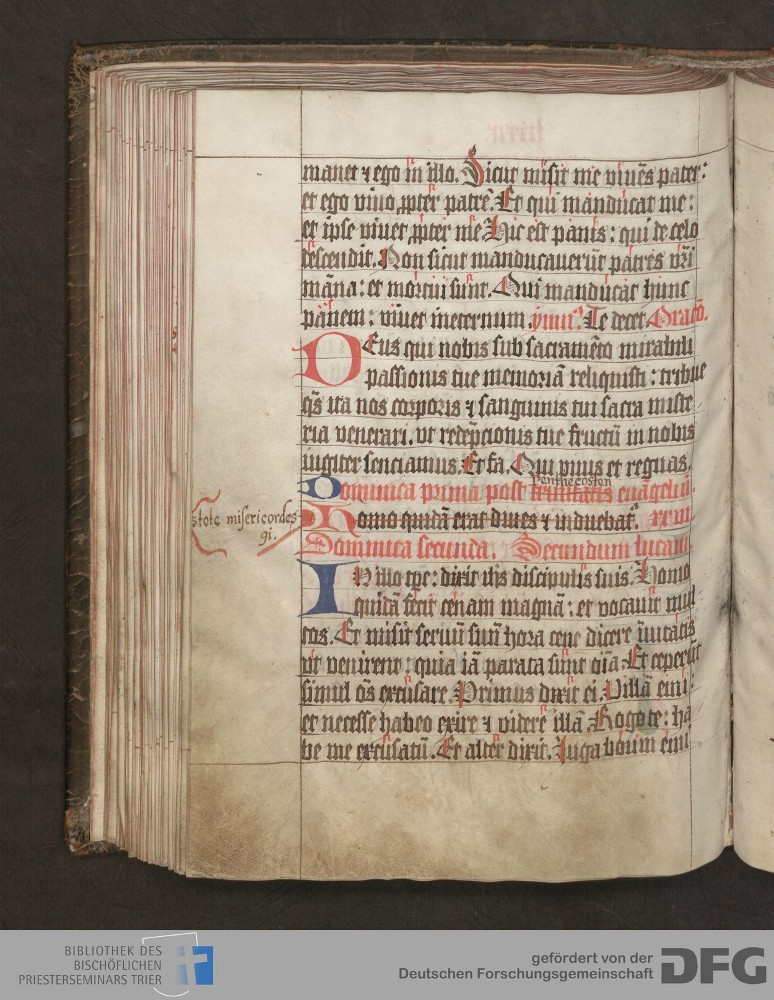 manet ⁊ ego in illo. Sicut misit me viuēs pater:
et ego viuo ꝓpter patrē. Et qui manducat me:
et ipse viuet ꝓpter me Hic est panis: qui de celo
descendit. Non sicut manducauerūt patres vr̄i
māna: et mortui sunt. Qui manducat hunc
panem: viuet ineternum. Te decet Oracō.
DEus qui nobis sub sacramēto mirabili
passionis tue memoriā reliquisti: tribue
qs̄ ita nos corporis ⁊ sanguinis tui sacra miste
ria venerari. vt redēpcionis tue fructū in nobis
iugiter senciamus. Et fa. Qui viuis et regnas.
penthecosten
Dominica prima post trinitatis euāgeliū.
stote misericordes
gi.
Homo quidā erat diues ⁊ induebat᷑. xxvii
Dominica secunda. Secundum lucam
IN illo tp̄e: dixit ih̄s discipulis suis. Homo
quidā fecit cenam magnā: et vocauit mul
tos. Et misit seruū suū hora cene dicere īuitatis
vt venirent: quia iā parata sunt oīa. Et ceperūt
simul oēs excusare. Primus dixit ei. Villā emi:
et necesse habeo exire ⁊ videre illā. Rogo te: ha
be me excusatū. Et alter dixit. Iuga boum emi
BIBLIOTHEK DES
BISCHÖFLICHEN
PRIESTERSEMINARS TRIER
gefördert von der
Deutschen Forschungsgemeinschaft
DFG